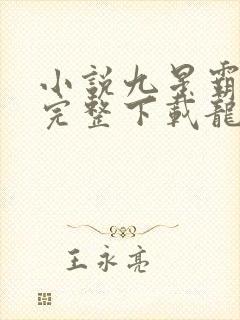 小說九星霸
完整下載龍
王永亮